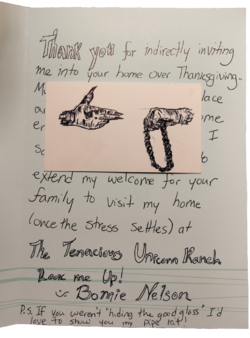 Thank you for indirectly inviting
me into your home over Thanksgiving.
I
extend my welcome for your
family to visit my home
(once the stress settles) at
The Tenacious Unicorn Ranch
Look me Up!
Bonnie Nelson
P.S. If you weren't "hiding the good glass" I'd
love to show you my pipe